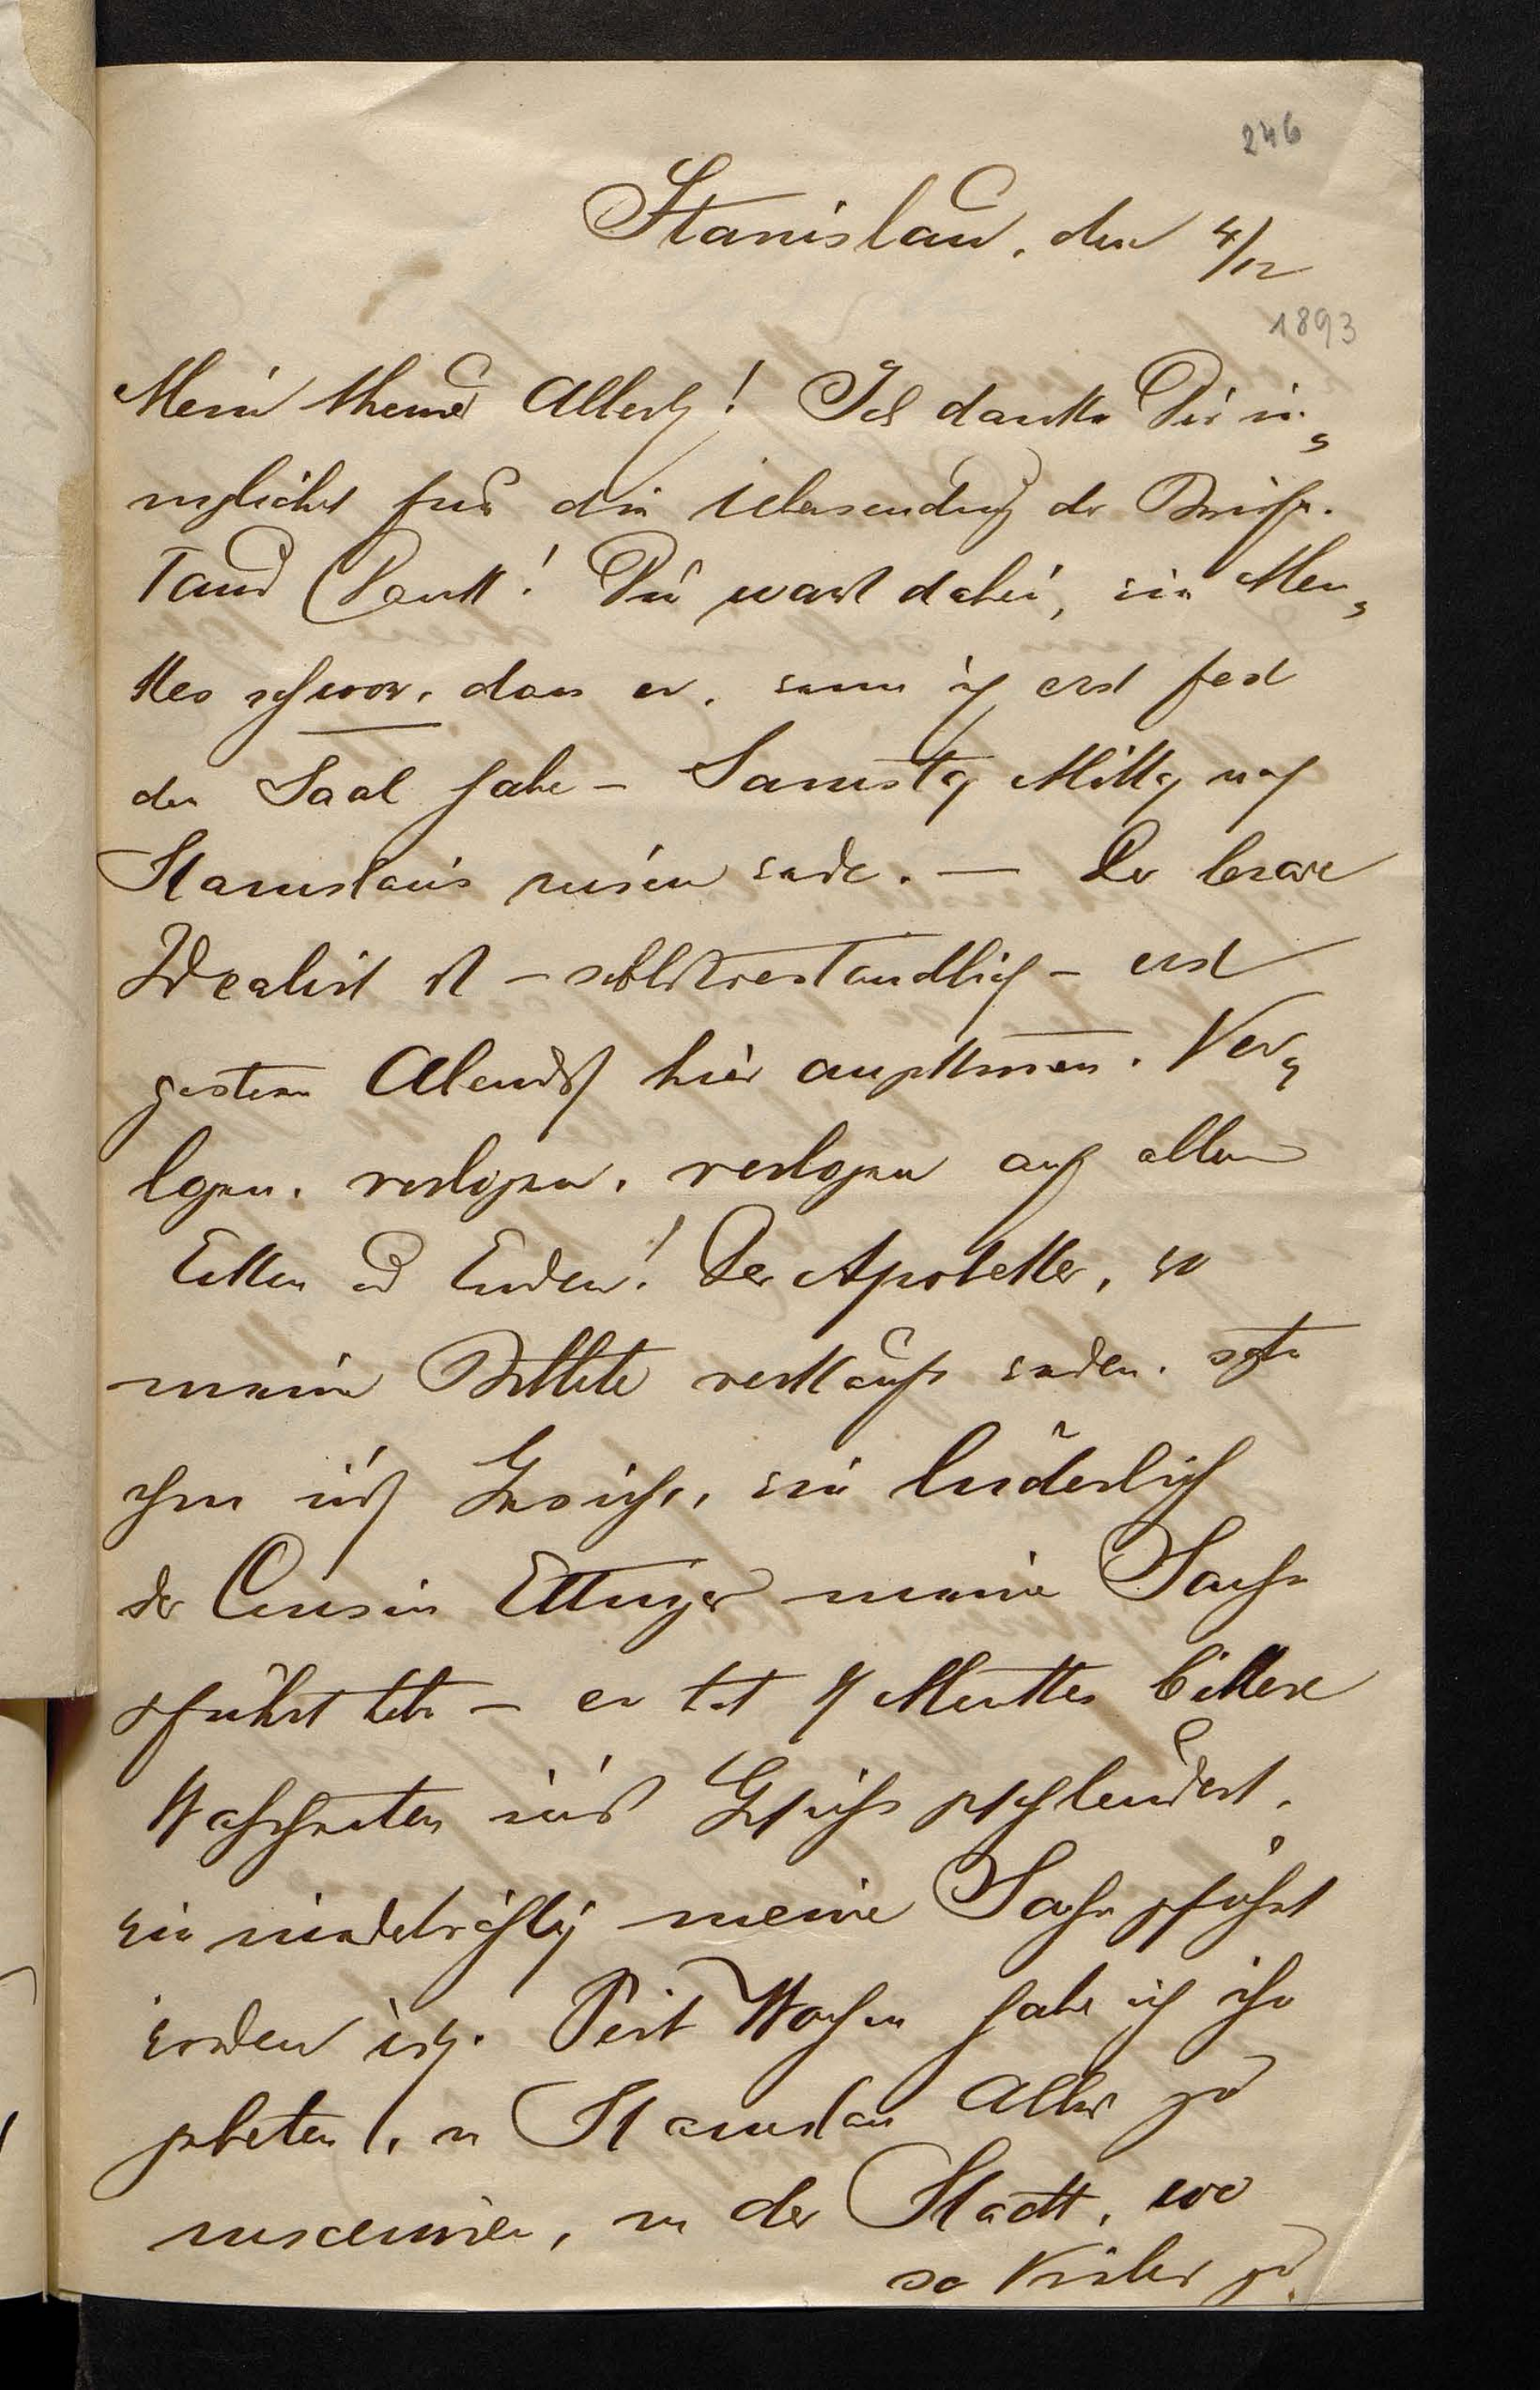 246
Stanislau, den 4/12
1893
Mein theurer Albert! Ich danke Dir in-
niglichst für die Uebersendung der Briefe.
Tausend Dank! Du warst dabei, wie Men-
kes schwor, dass er, wenn ich erst fest
den Saal habe – Samstag Mittag nach
Stanislau reisen werde. — Der brave
Idealist ist – selbstverständlich – erst
gestern Abends hier angekommen. Ver-
logen, verlogen, verlogen auf allen
Ecken und Enden! Der Apotheker, wo
meine Billete verkauft werden, sagte
ihm ins Gesicht, wie lüderlich
der Cousin Ettinger meine Sache
geführt habe – er hat Menkes bittere
Wahrheiten ins Gesicht geschleudert,
wie niederträchtig meine Sache geführt
worden ist. Seit Wochen habe ich ihn
gebeten, in Stanislau Alles zu
inscenieren, in der Stadt, wo
so Vieles zu